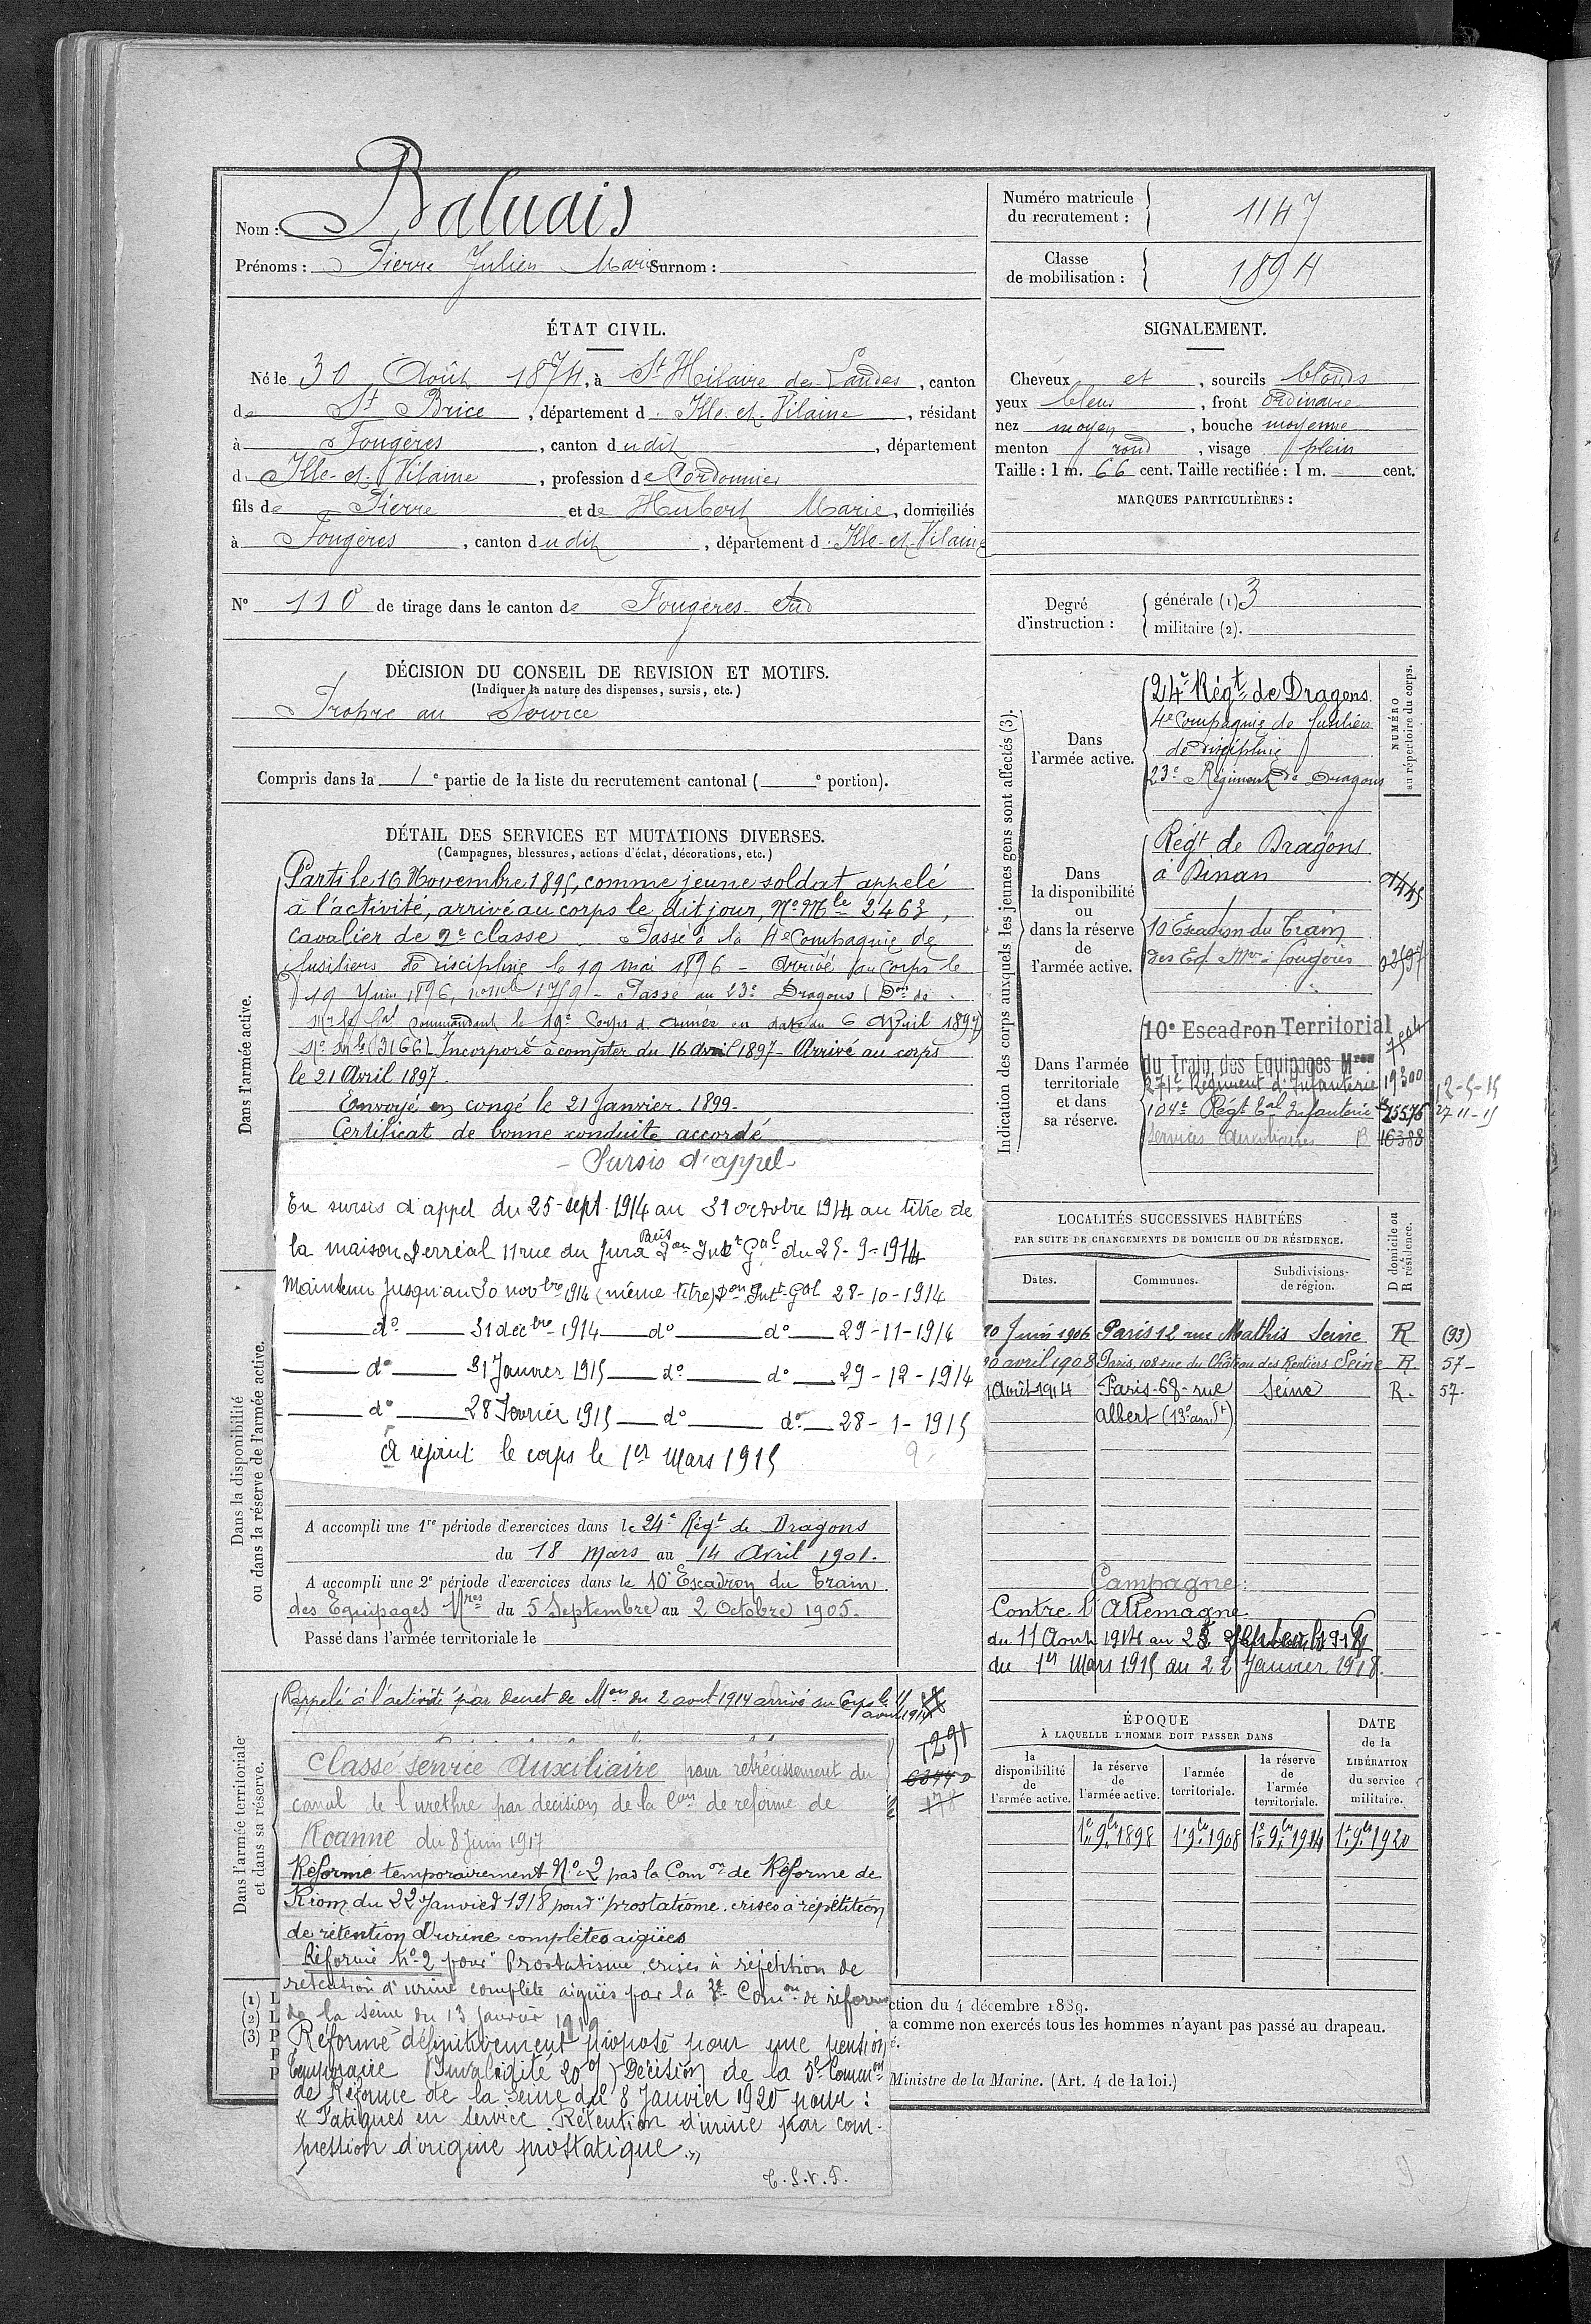 Nom : Baluais
Prénoms : Pierre Julien Marie Surnom :
Numéro matricule du recrutement : 1147
Classe de mobilisation : 1894
ÉTAT CIVIL.
Né le 30 Août 1874, à St Hilaire des Landes, canton
de St Brice, département d. Ille-et-Vilaine, résidant
à Fougères, canton dudit, département
d. Ille-et-Vilaine, profession de Cordonnier
fils de Pierre et de Hubert Marie, domiciliés
à Fougères, canton dudit, département d. Ille-et-Vilaine
N° 110 de tirage dans le canton de Fougères Sud
SIGNALEMENT.
Cheveux et, sourcils blonds
yeux bleus, front ordinaire
nez moyen, bouche moyenne
menton rond, visage plein
Taille : 1 m. 66 cent. Taille rectifiée : 1 m. cent.
MARQUES PARTICULIÈRES :
Degré d'instruction :
générale (1) 3
militaire (2).
DÉCISION DU CONSEIL DE REVISION ET MOTIFS.
(Indiquer la nature des dispenses, sursis, etc.)
Propre au Service
Compris dans la 1e partie de la liste du recrutement cantonal ( e portion).
DÉTAIL DES SERVICES ET MUTATIONS DIVERSES.
(Campagnes, blessures, actions d'éclat, décorations, etc.)
Dans l'armée active.
Parti le 16 Novembre 1895, comme jeune soldat appelé
à l'activité, arrivé au corps le dit jour, No Mle 2463,
cavalier de 2e classe. Passé à la 4e Compagnie de
fusiliers de discipline le 19 mai 1896 - Arrivé au corps le
19 Juin 1896, no mle 1759 - Passé au 23e Dragons (Don de
Mr le Gal Commandant le 19e Corps d'armée en date du 6 Avril 1897)
No mle (3166) Incorporé à compter du 16 avril 1897 - Arrivé au corps
le 21 Avril 1897.
Envoyé en congé le 21 Janvier 1899.
Certificat de bonne conduite accordé
- Sursis d'appel -
En sursis d'appel du 25-sept. 1914 au 31 octobre 1914 au titre de
la maison Perréal 11 rue du Jura Paris Don Intt Gal du 25-9-1914
Maintenu jusqu'au 30 novbre 1914 (même titre) Don Intt Gal 28-10-1914
do 31 décbre 1914 do do 29-11-1914
do 31 Janvier 1915 do do 29-12-1914
do 28 Fevrier 1915 do do 28-1-1915
A rejoint le corps le 1er Mars 1915
Dans la disponibilité
ou dans la réserve de l'armée active.
A accompli une 1re période d'exercices dans le 24e Régt de Dragons
du 18 Mars au 14 Avril 1901.
A accompli une 2e période d'exercices dans le 10e Escadron du Train
des Equipages Mres du 5 Septembre au 2 Octobre 1905.
Passé dans l'armée territoriale le
Dans l'armée territoriale
et dans sa réserve.
Rappelé à l'activité par décret de Mon du 2 aout 1914 arrivé au Corps le 11
aout 1914
1291
178
Classé service Auxiliaire pour retrécissement du
canal de l'urethre par decision de la Con de reforme de
Roanne du 8 Juin 1917
Réformé temporairement No 2 par la Comon de Réforme de
Riom du 22 Janvier 1918 pour "prostatisme. crises à répétition
de rétention d'urine complètes aigües
Réformé No 2 pour "Prostatisme crises à répétition de
retention d'urine complète aiguës par la 2e Comon de réforme
de la Seine du 13 janvier 1919
Réformé définitivement proposé pour une pension
temporaire (Invalidité 20%) Décision de la 5e Common
de Réforme de la Seine du 8 Janvier 1920 pour :
« Fatigues en service. Rétention d'urine par com-
pression d'origine prostatique »
C.S.V.F.
Indication des corps auxquels les jeunes gens sont affectés (3).
NUMÉRO
au répertoire du corps.
Dans l'armée active.
24e Régt de Dragons
4e Compagnie de fusiliers
de discipline
23e Régiment de Dragons
Dans la disponibilité ou dans la réserve de l'armée active.
Régt de Dragons
à Dinan
10 Escadron du Train
des Eq. Mres Fougères
Dans l'armée territoriale et dans sa réserve.
10e Escadron Territorial
du Train des Equipages Mres
271e Régiment d'Infanterie 19300 12-5-15
104e Régt tal Infanterie 15576 27-11-15
Services Auxiliaires 16388
LOCALITÉS SUCCESSIVES HABITÉES
PAR SUITE DE CHANGEMENTS DE DOMICILE OU DE RÉSIDENCE.
Dates. Communes. Subdivisions de région. D domicile ou R résidence.
20 Juin 1906 Paris 12 rue Mathis Seine R (93)
20 avril 1908 Paris, 108 rue du Château des Rentiers Seine R. 57-
1 Août 1914 Paris-68-rue Seine R. 57.
Albert (13e arrdt)
Campagne :
Contre l'Allemagne
du 11 Aout 1914 au 25 Septembre 1914
du 1er Mars 1915 au 22 Janvier 1918.
ÉPOQUE
À LAQUELLE L'HOMME DOIT PASSER DANS
DATE de la LIBÉRATION du service militaire.
la disponibilité de l'armée active. la réserve de l'armée active. l'armée territoriale. la réserve de l'armée territoriale.
1er 9bre 1898 1er 9bre 1908 1er 9bre 1914 1er 9bre 1920
(1) L
(2) L
(3) P
P
P
ction du 4 décembre 1889.
a comme non exercés tous les hommes n'ayant pas passé au drapeau.
é.
Ministre de la Marine. (Art. 4 de la loi.)